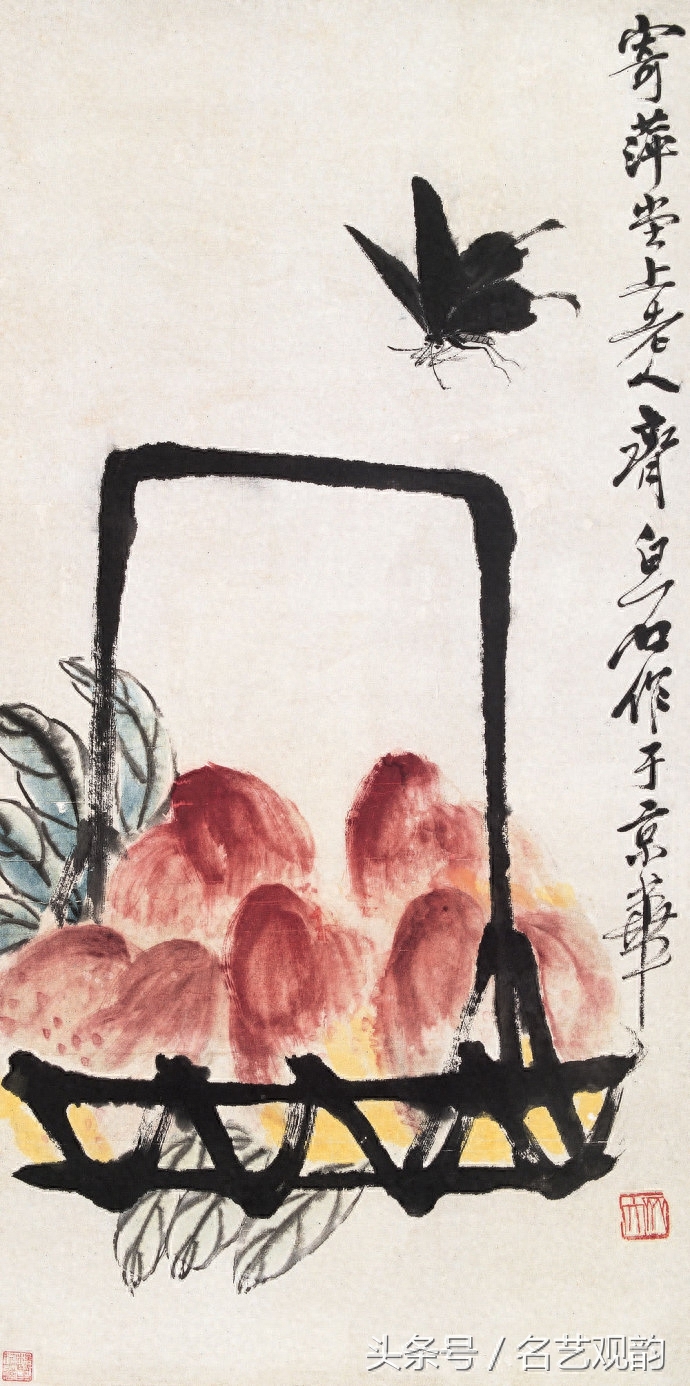 寄萍堂上老人齊白石作于京華
木人
头条号 / 名艺观韵